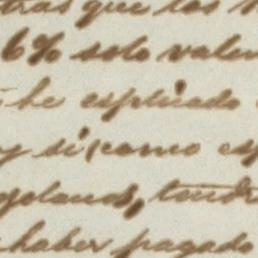 tras que las
6% solo valen
he esplicado
y si como es
golanas, tendr
haber pagado